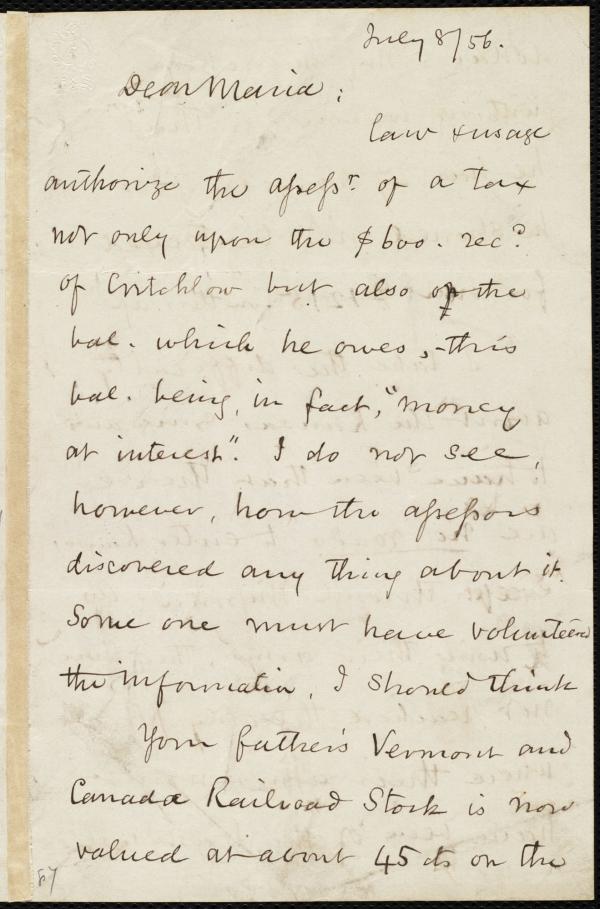 July 8/56.
Dear Maria:
Law & usage
authorize the assess.t of a tax
not only upon the $600. rec.d
of Critchlow but also of the
bal. which he owes, - this
bal. being, in fact, "money
at interest". I do not see,
however, how the assessors
discovered any thing about it.
Some one must have volunteered
the information, I should think
Your father's Vermont and
Canada Railroad Stock is now
valued at about 45 cts on the
87